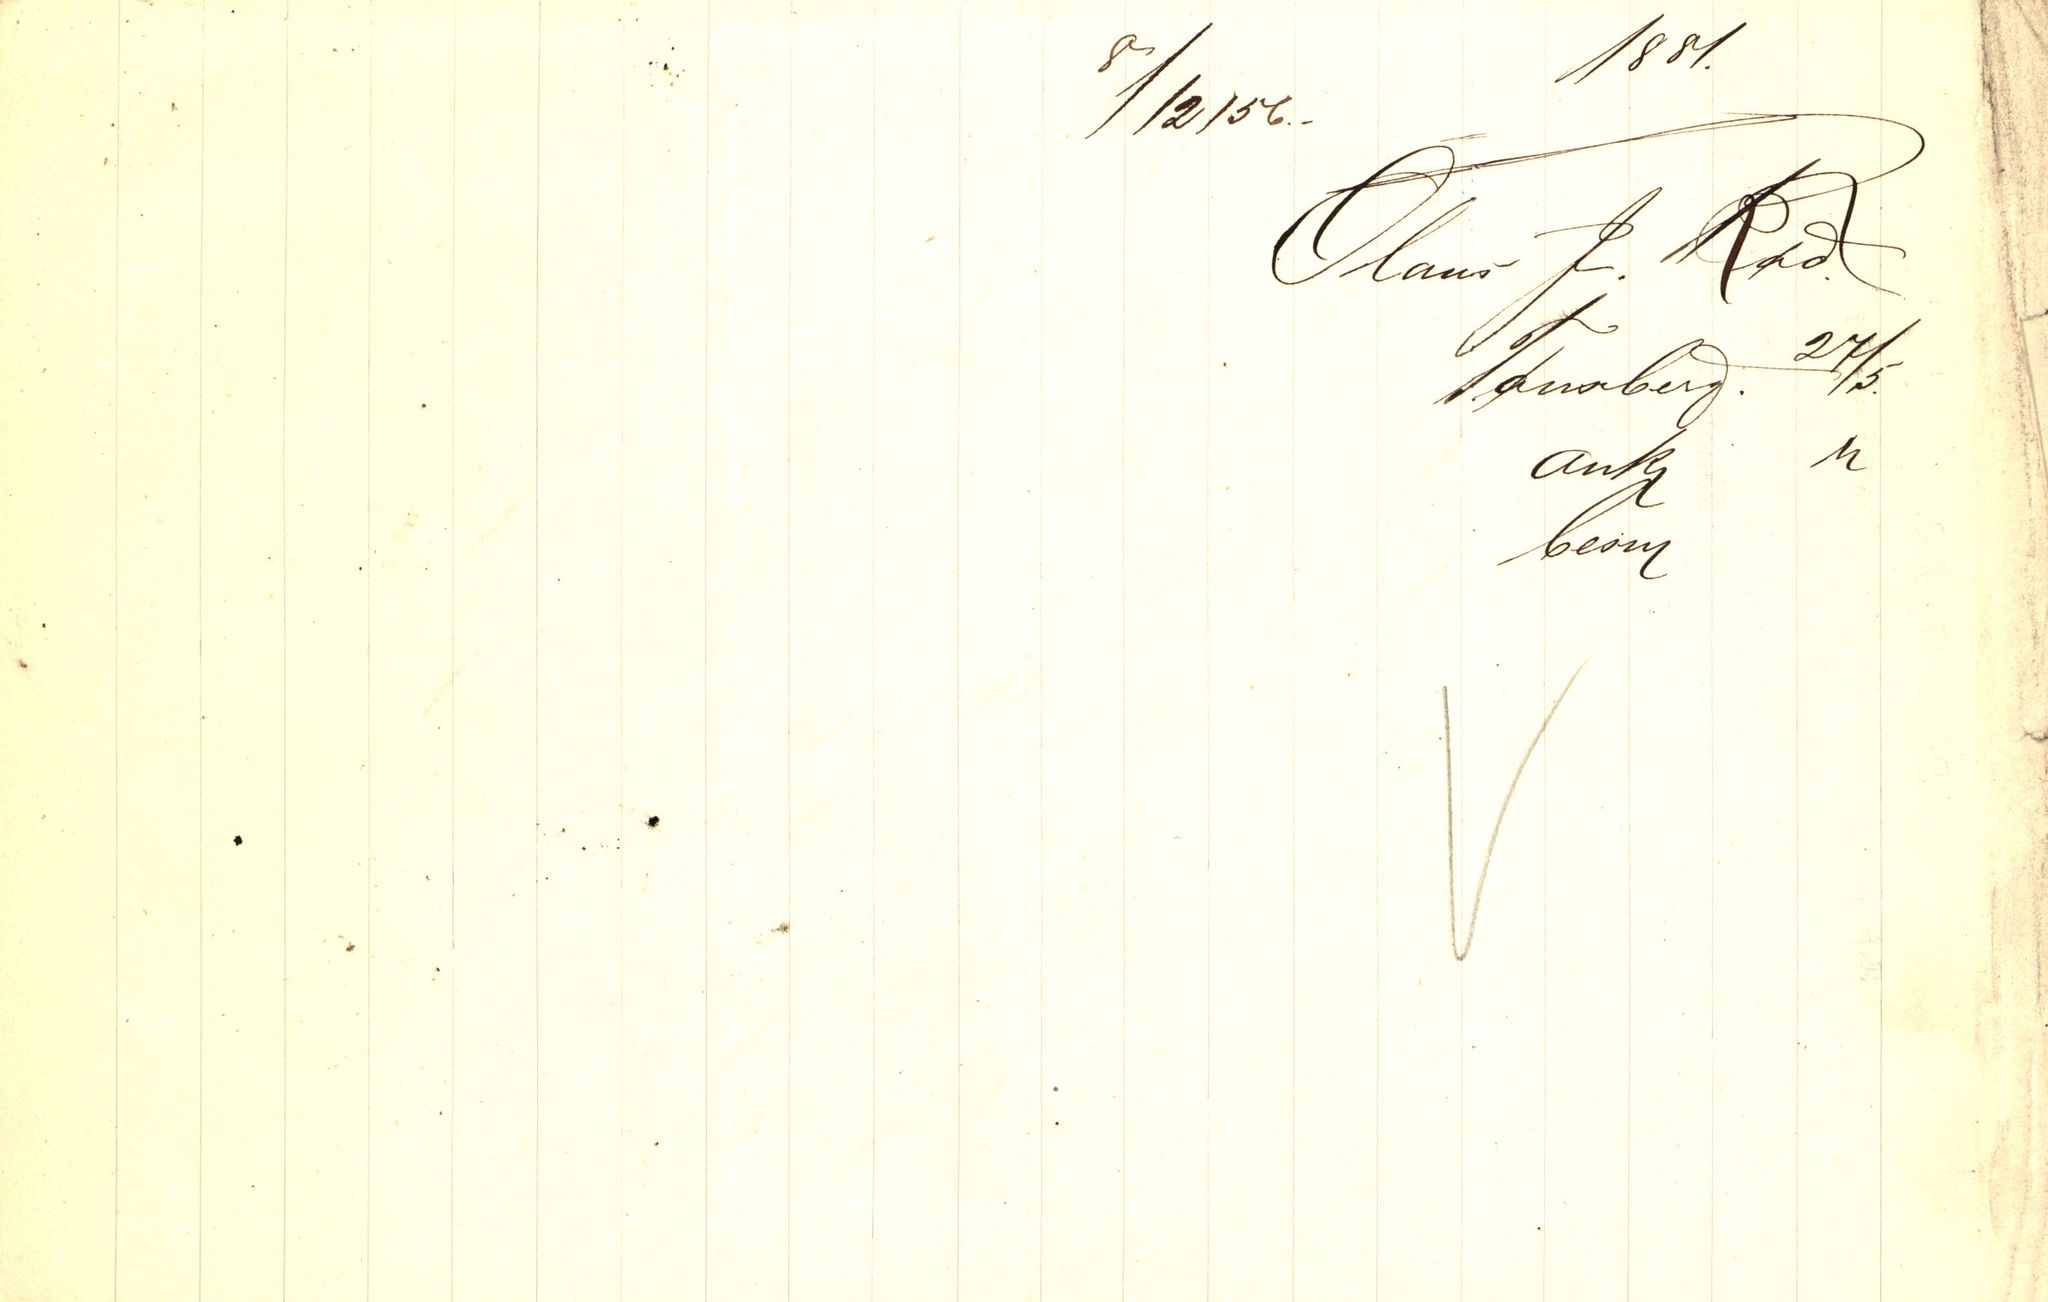 1881.
8/12/56.-
Olaus J. Rød.
Tønsberg. 27/5.
ank
besv